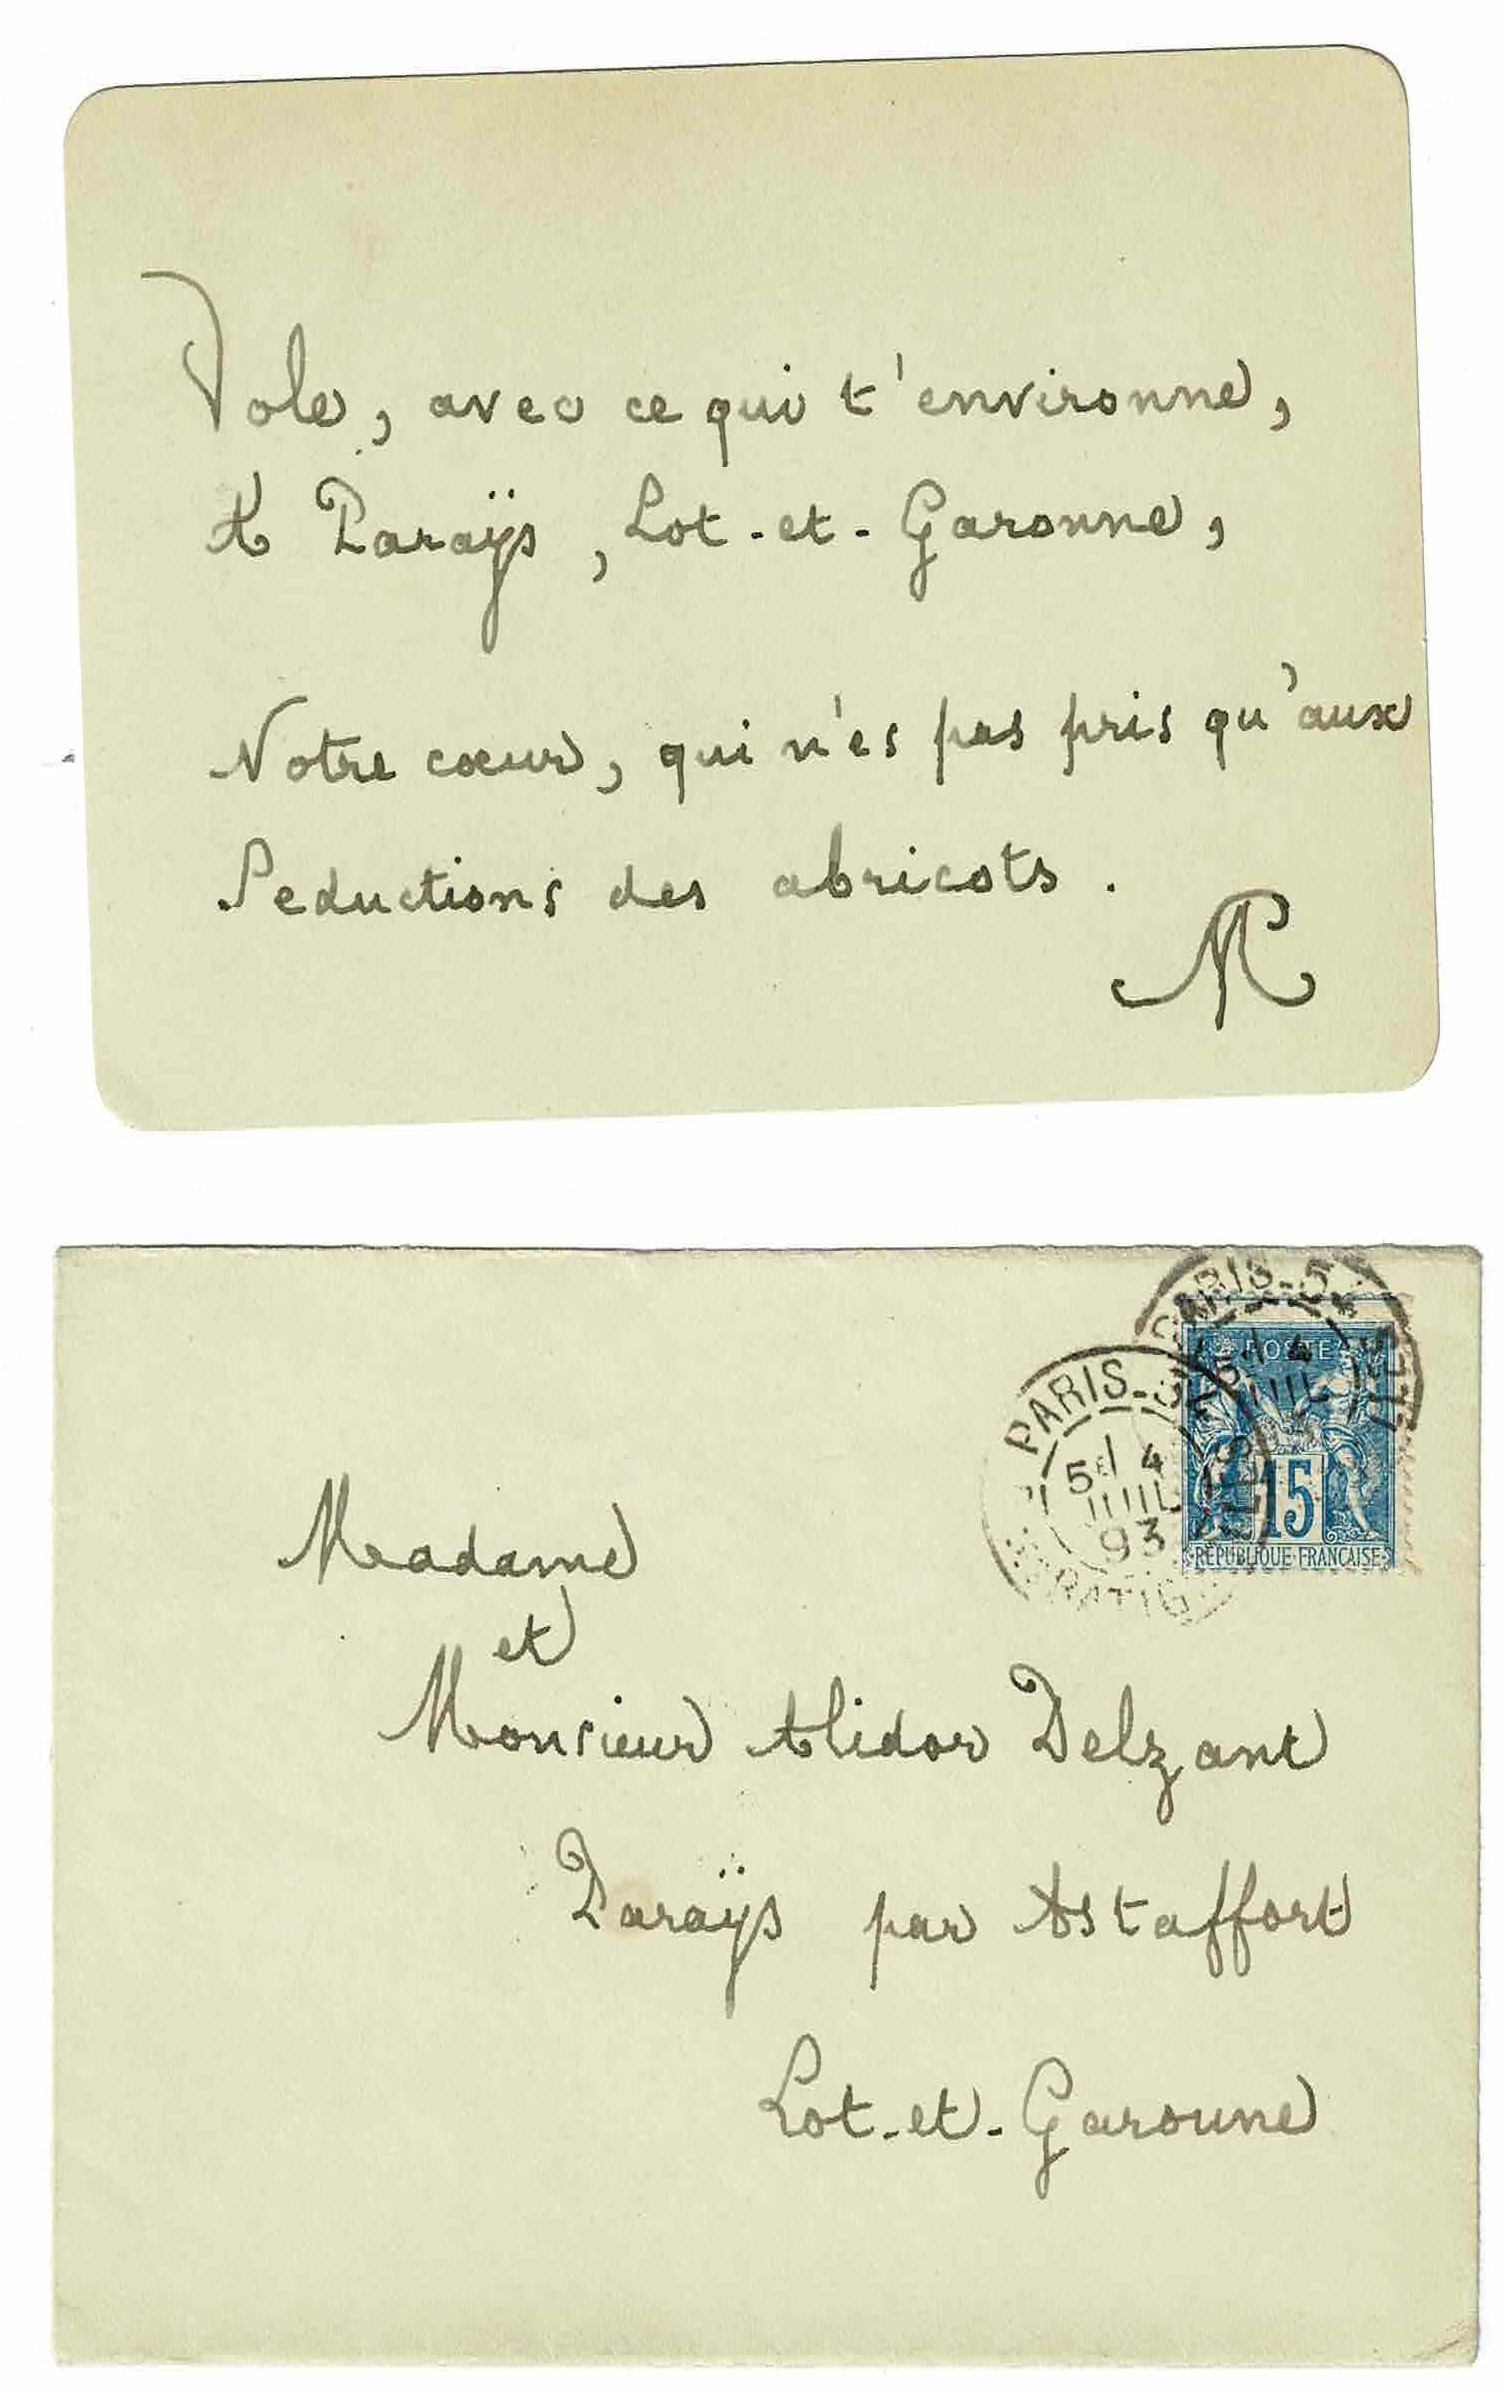 Vole, avec ce qui t'environne,
A Paraÿs, Lot-et-Garonne,
Notre cœur, qui n'es pas pris qu'aux
Seductions des abricots.
SM
PARIS-5
5E/ 4
JUIL
93
POSTES
15
REPUBLIQUE FRANCAISE
PARIS-5
5E/ 4
JUIL
93
Madame
et
Monsieur Alidor Delzant
Paraÿs par Astaffort
Lot-et-Garonne